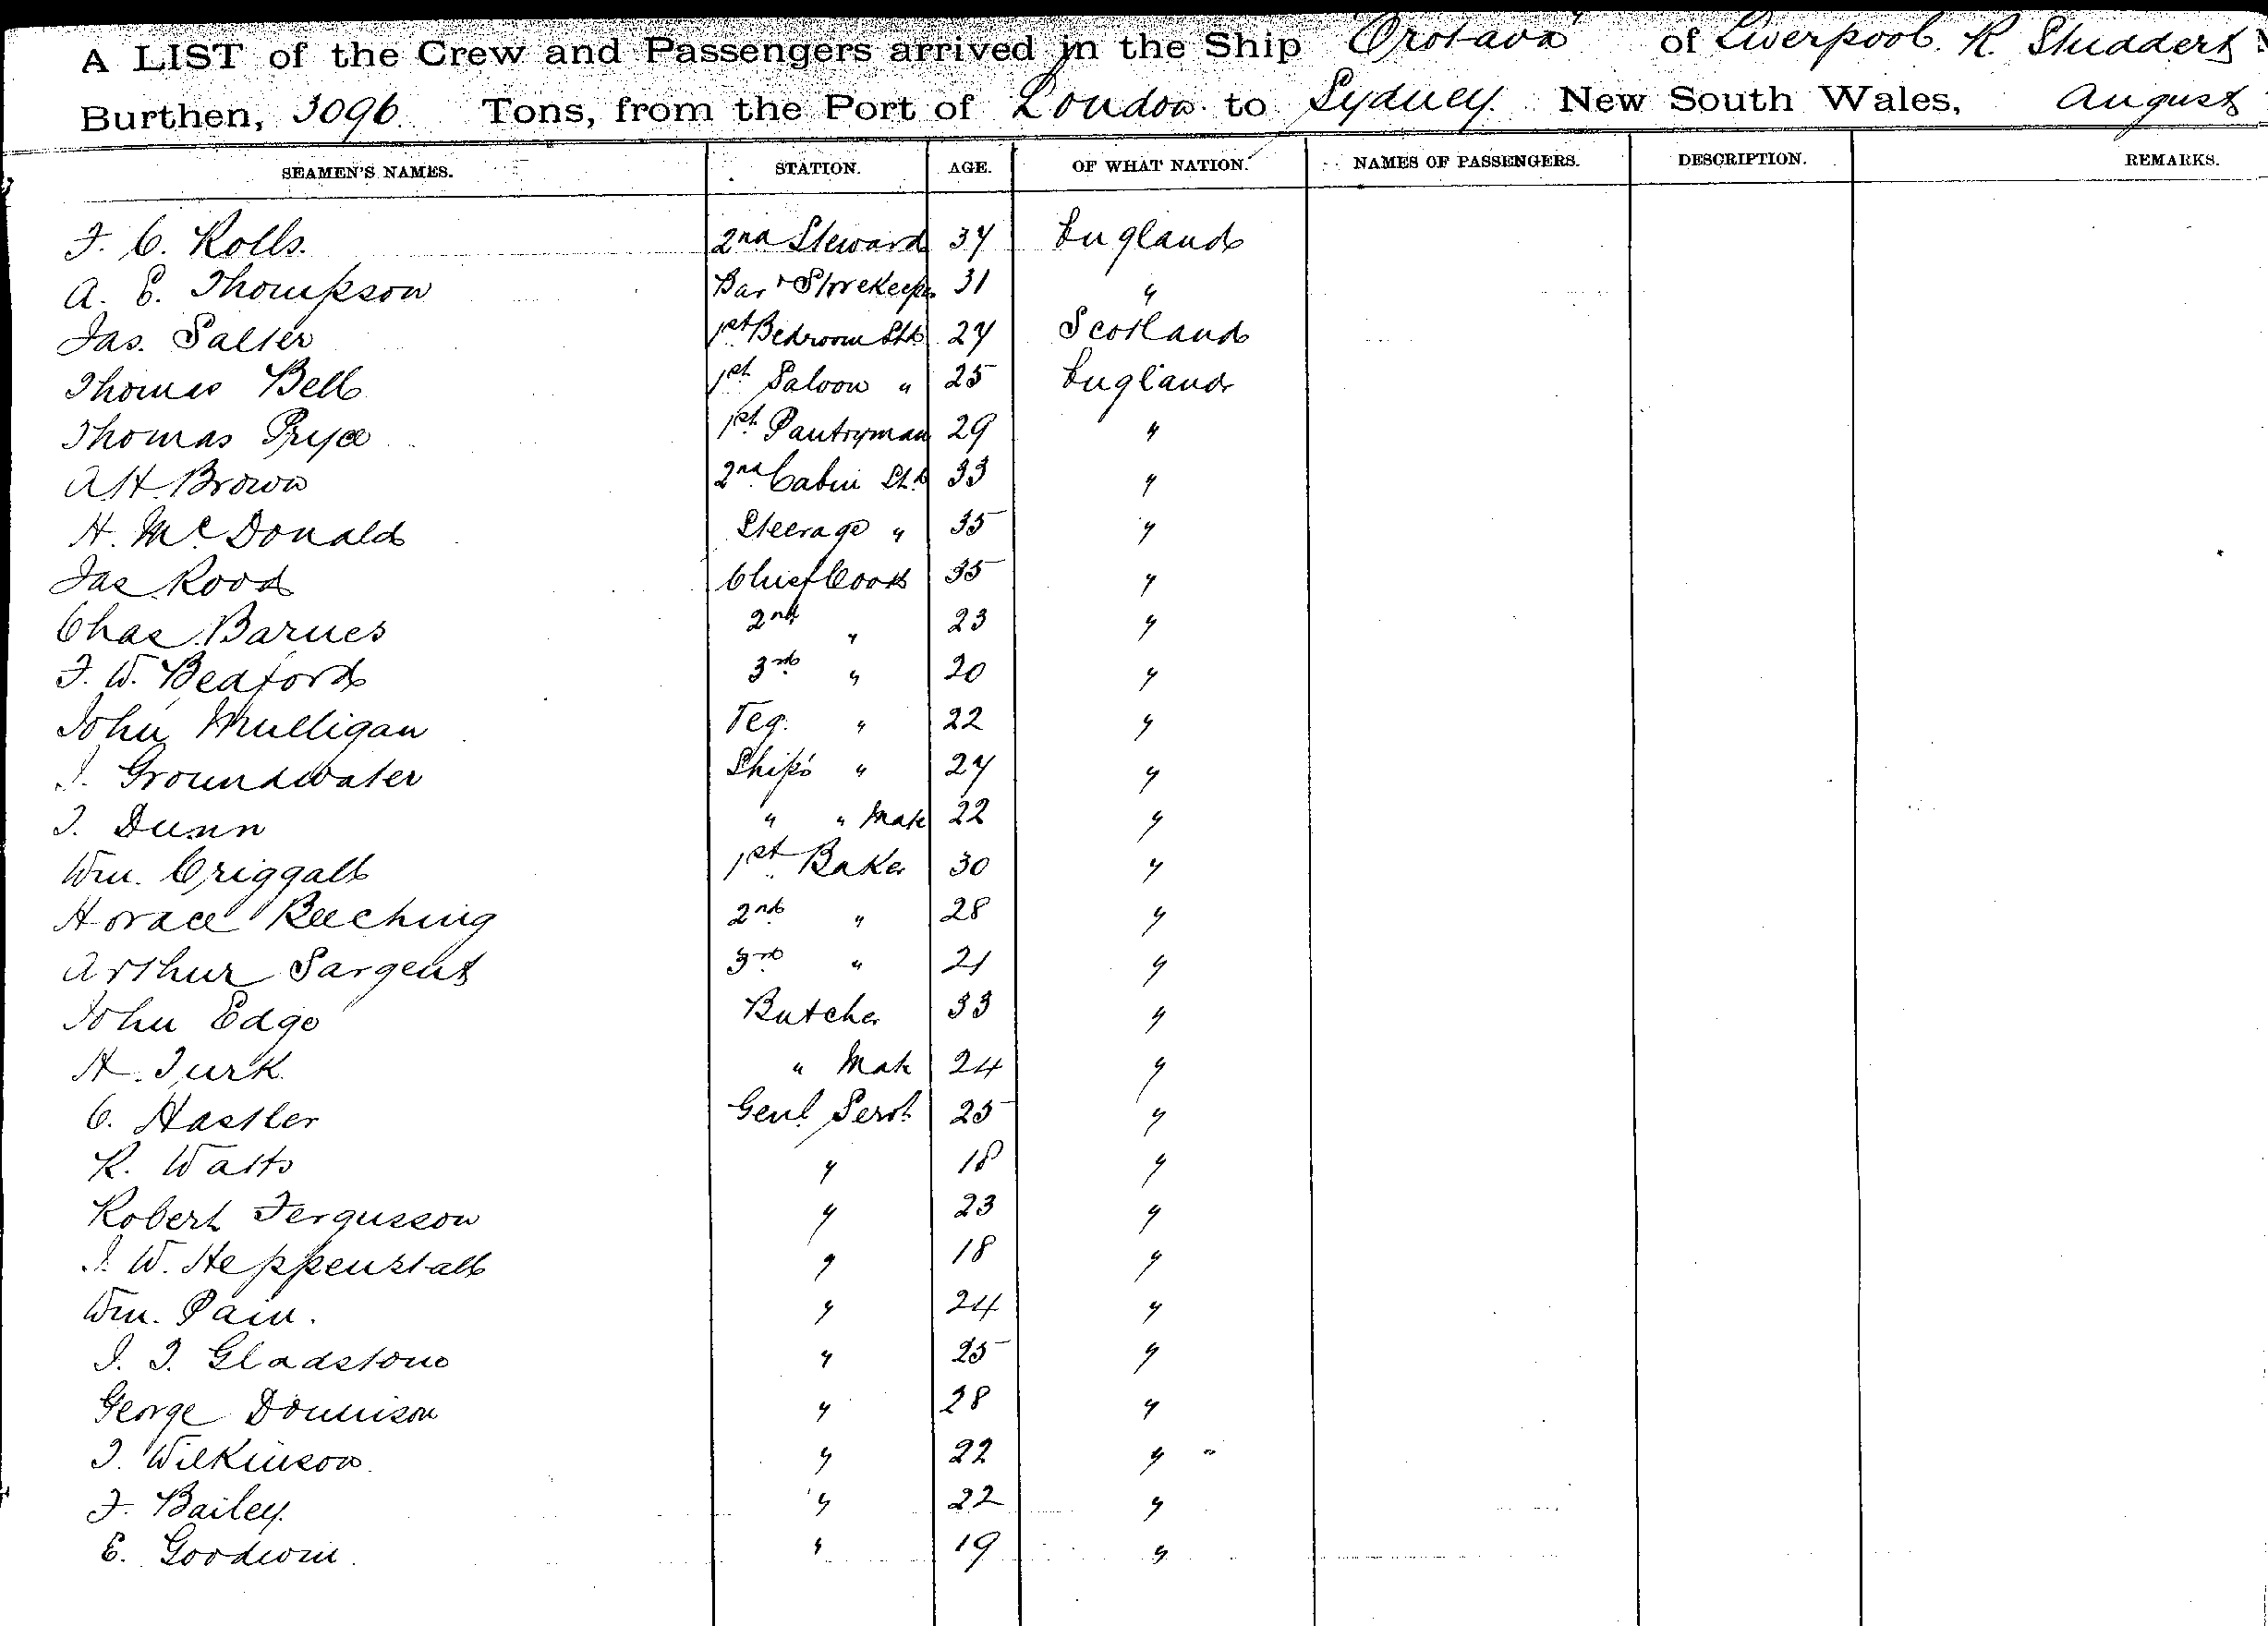 A LIST of the Crew and Passengers arrived in the Ship "Orotava" of Liverpool. R. Studdert
Burthen, 3096. Tons, from the Port of London to Sydney. New South Wales, August
SEAMEN'S NAMES. STATION. AGE. OF WHAT NATION. NAMES OF PASSENGERS. DESCRIPTION. REMARKS.
F. C. Rolls. 2nd Steward 34 England
A. E. Thompson Bar & Storekeeper 31 "
Jas. Salter 1st Bedroom Std 27 Scotland
Thomas Bell 1st Saloon " 25 England
Thomas Pryce 1st Pantryman 29 "
A. H. Brown 2nd Cabin Std 33 "
H. McDonald Steerage " 35 "
Jas Rood Chief Cook 35 "
Chas. Barnes 2nd " 23 "
F. W. Bedford 3rd " 20 "
John Mulligan Veg. " 22 "
J. Groundwater Ship's " 27 "
T. Dunn " " Mate 22 "
Wm. Criggall 1st Baker 30 "
Horace Beeching 2nd " 28 "
Arthur Sargent 3rd " 21 "
John Edge Butcher 33 "
H. Turk " Mate 24 "
C. Hastler Genl Servt. 25 "
R. Watts " 18 "
Robert Fergusson " 23 "
J. W. Heppenstall " 18 "
Wm. Pain. " 24 "
J. T. Gladstone " 25 "
George Donnison " 28 "
T. Wilkinson. " 22 "
F. Bailey. " 22 "
E. Goodwin. " 19 "